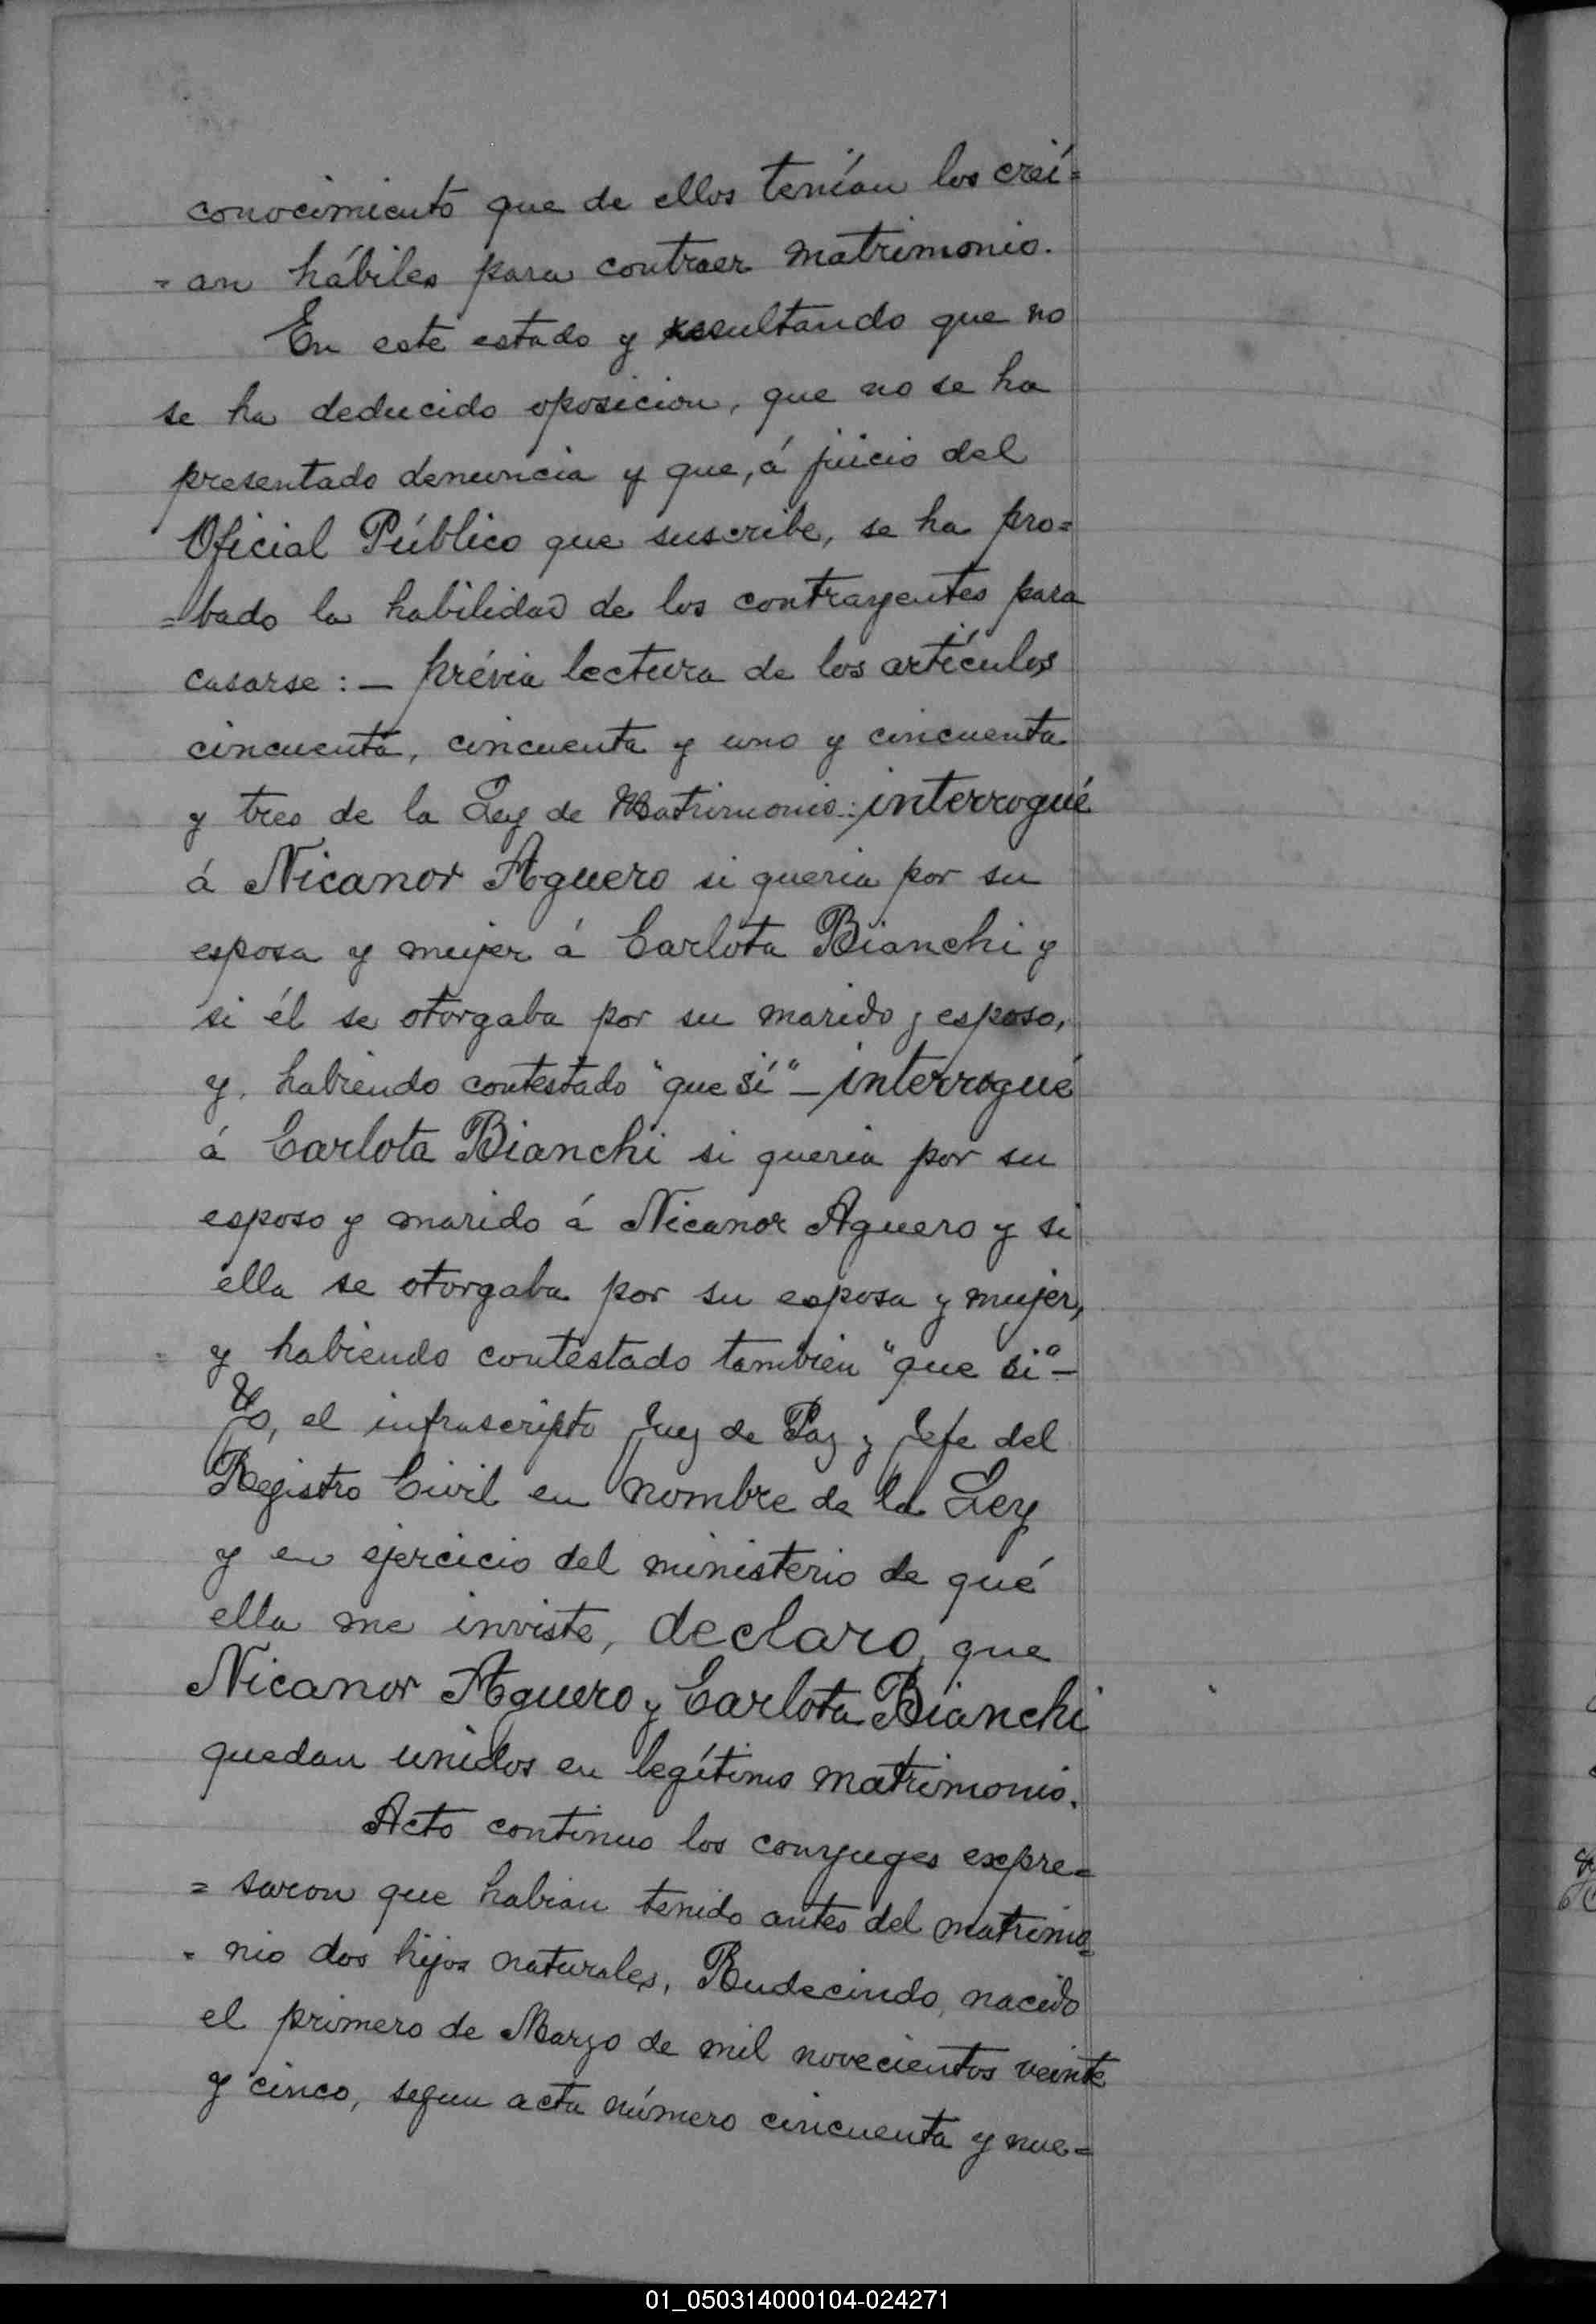 conocimiento que de ellos tenían los creí=
=an hábiles para contraer matrimonio.
En este estado y resultando que no
se ha deducido oposicion, que no se ha
presentado denuncia y que, á juicio del
Oficial Público que suscribe, se ha pro=
=bado la habilidad de los contrayentes para
casarse: — prévia lectura de los artículos
cincuenta, cincuenta y uno y cincuenta
y tres de la Ley de Matrimonio: interrogué
á Nicanor Aguero si queria por su
esposa y mujer á Carlota Bianchi y
si él se otorgaba por su marido y esposo,
y habiendo contestado "que sí" — interrogué
á Carlota Bianchi si queria por su
esposo y marido á Nicanor Aguero y si
ella se otorgaba por su esposa y mujer,
y habiendo contestado tambien "que si" —
Yo, el infrascripto Juez de Paz y Jefe del
Registro Civil en nombre de la Ley
y en ejercicio del ministerio de qué
ella me inviste, declaro, que
Nicanor Aguero y Carlota Bianchi
quedan unidos en legítimo matrimonio.
Acto continuo los conyuges expre=
=saron que habian tenido antes del matrimo=
=nio dos hijos naturales, Rudecindo, nacido
el primero de Marzo de mil novecientos veinte
y cinco, segun acta número cincuenta y nue=
01_050314000104-024271